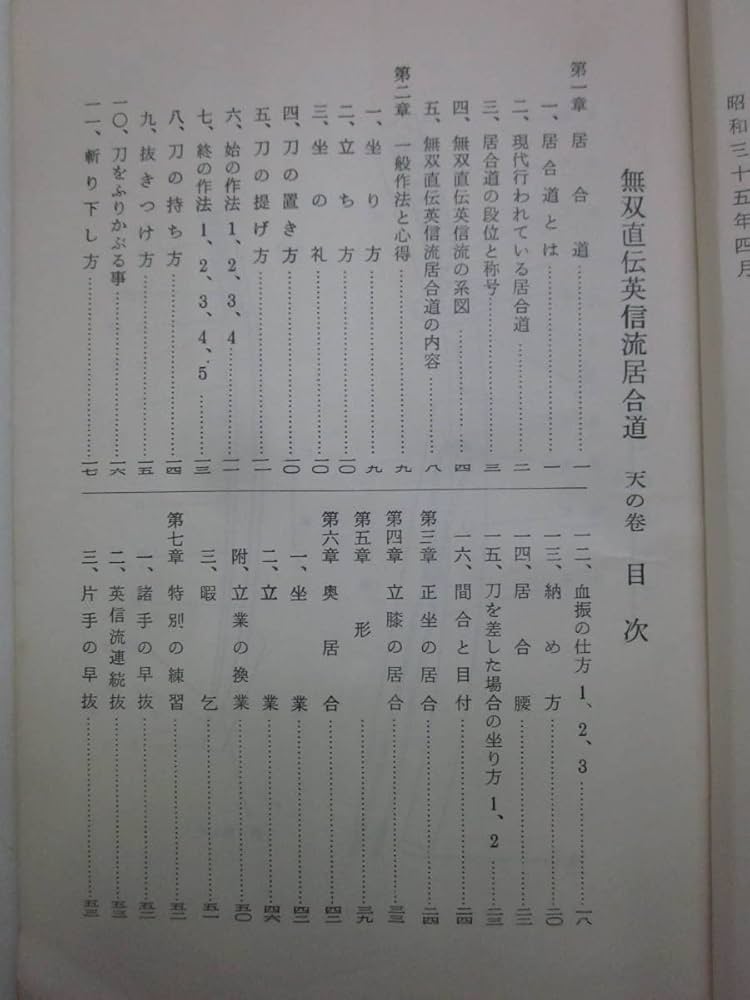 昭和三十五年四月
無双直伝英信流居合道 天の巻 目次
第一章 居合道……一
一、居合道とは……一
二、現代行われている居合道……二
三、居合道の段位と称号……三
四、無双直伝英信流の系図……四
五、無双直伝英信流居合道の内容……八
第二章 一般作法と心得……九
一、坐り方……九
二、立ち方……一〇
三、坐の礼……一〇
四、刀の置き方……一〇
五、刀の提げ方……一一
六、始の作法 1、2、3、4……一一
七、終の作法 1、2、3、4、5……一三
八、刀の持ち方……一四
九、抜きつけ方……一五
一〇、刀をふりかぶる事……一六
一一、斬り下し方……一七
一二、血振の仕方 1、2、3……一八
一三、納め方……二〇
一四、居合腰……二三
一五、刀を差した場合の坐り方 1、2……二三
一六、間合と目付……二四
第三章 正坐の居合……二四
第四章 立膝の居合……三三
第五章 形……三九
第六章 奥居合……四二
一、坐業……四二
二、立業……四六
附、立業の換業……五〇
三、暇乞……五一
第七章 特別の練習……五二
一、諸手の早抜……五二
二、英信流連続抜……五三
三、片手の早抜……五三